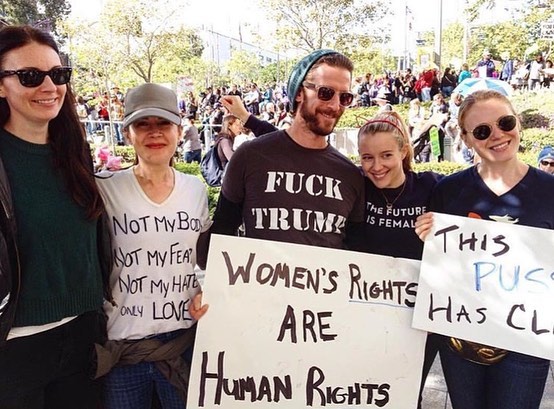 NOT MY BODY
NOT MY FEAR
NOT MY HATE
ONLY LOVE
FUCK
TRUMP
THE FUTURE
IS FEMALE
WOMEN'S RIGHTS
ARE
HUMAN RIGHTS
THIS
HAS